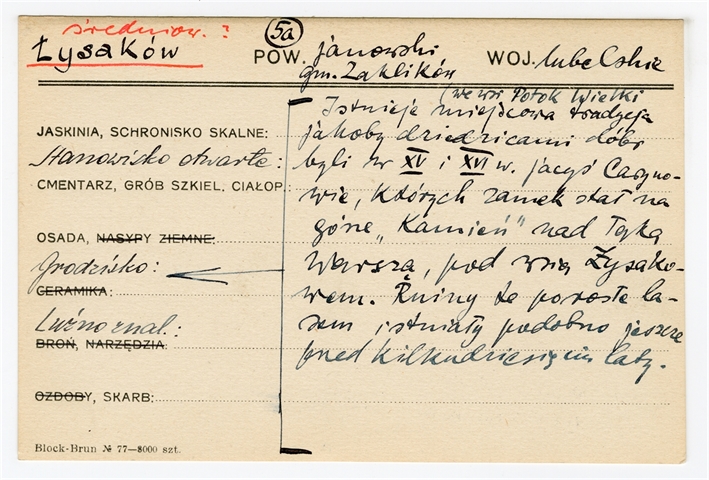 średniow. ?
Łysaków
5a
POW. janowski
gm. Zaklików
WOJ. lubelskie
(we wsi Potok Wielki
Istnieje miejscowa tradycja
JASKINIA, SCHRONISKO SKALNE:
jakoby dziedzicami dóbr
Stanowisko otwarte:
byli w XV i XVI w. jacyś
CMENTARZ, GRÓB SZKIEL, CIAŁOP.:
wie, których zamek stał na
górze „Kamień" nad
OSADA, NASYPY ZIEMNE:
Grodzisko:
pod wsią Łysako-
CERAMIKA:
wem. Ruiny te porosłe la-
Luźno znal.:
sem istniały podobno jeszcze
BROŃ, NARZĘDZIA.
przed kilkudziesięciu laty.
OZDOBY, SKARB:
Block-Brun № 77—8000 szt.